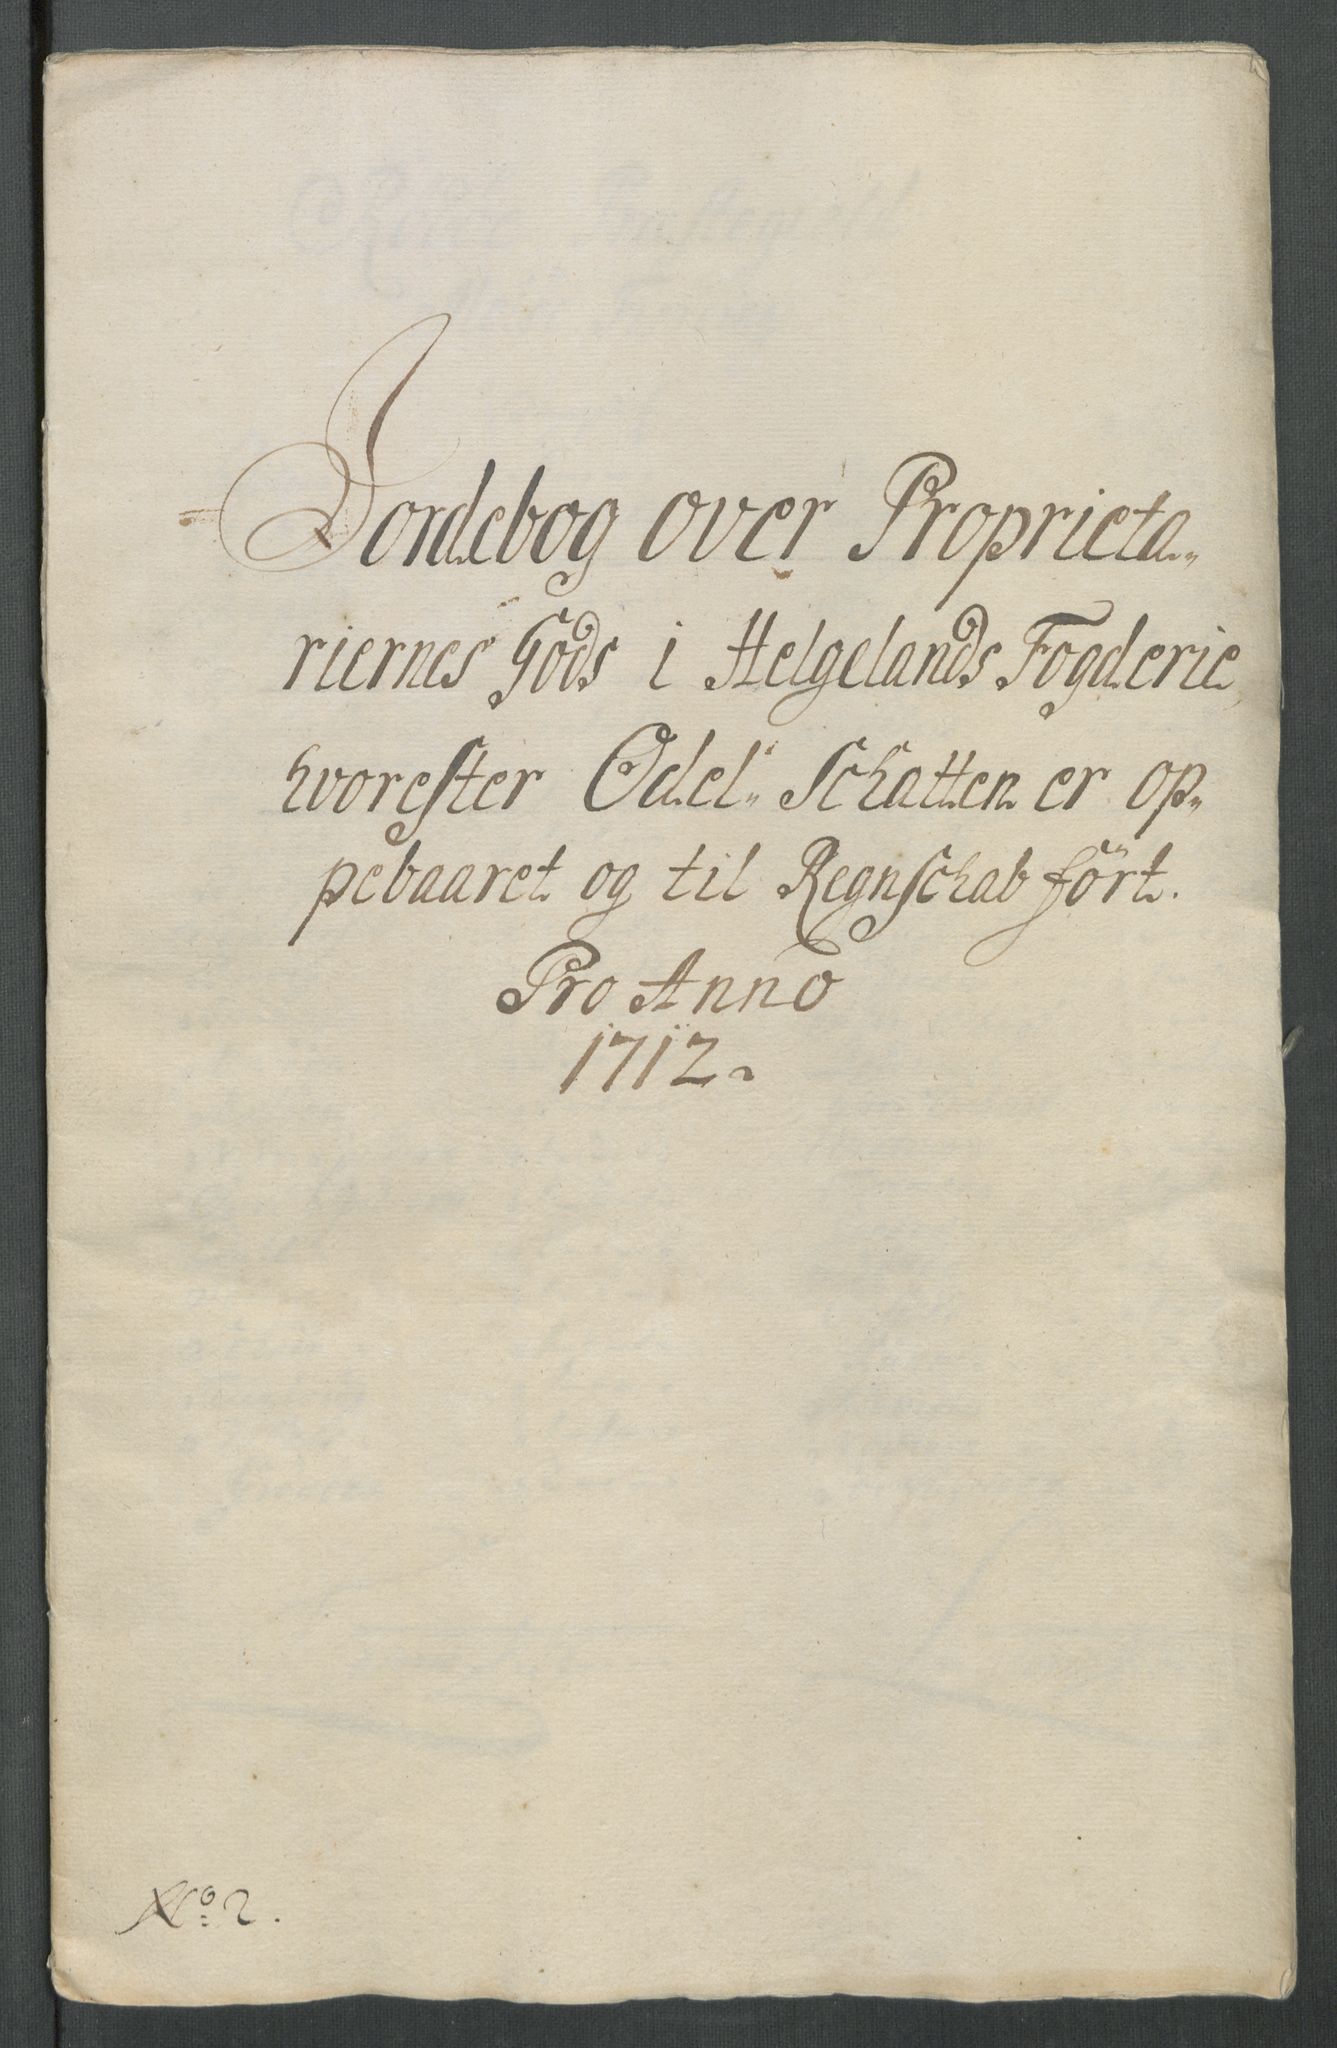 Jordebog over Proprieta-
riernes Gods i Helgelands Fogderie
hvorefter Odel- Schatten er op-
pebaaret og til Regnschab ført.
Pro Anno
1712.
No: 2.